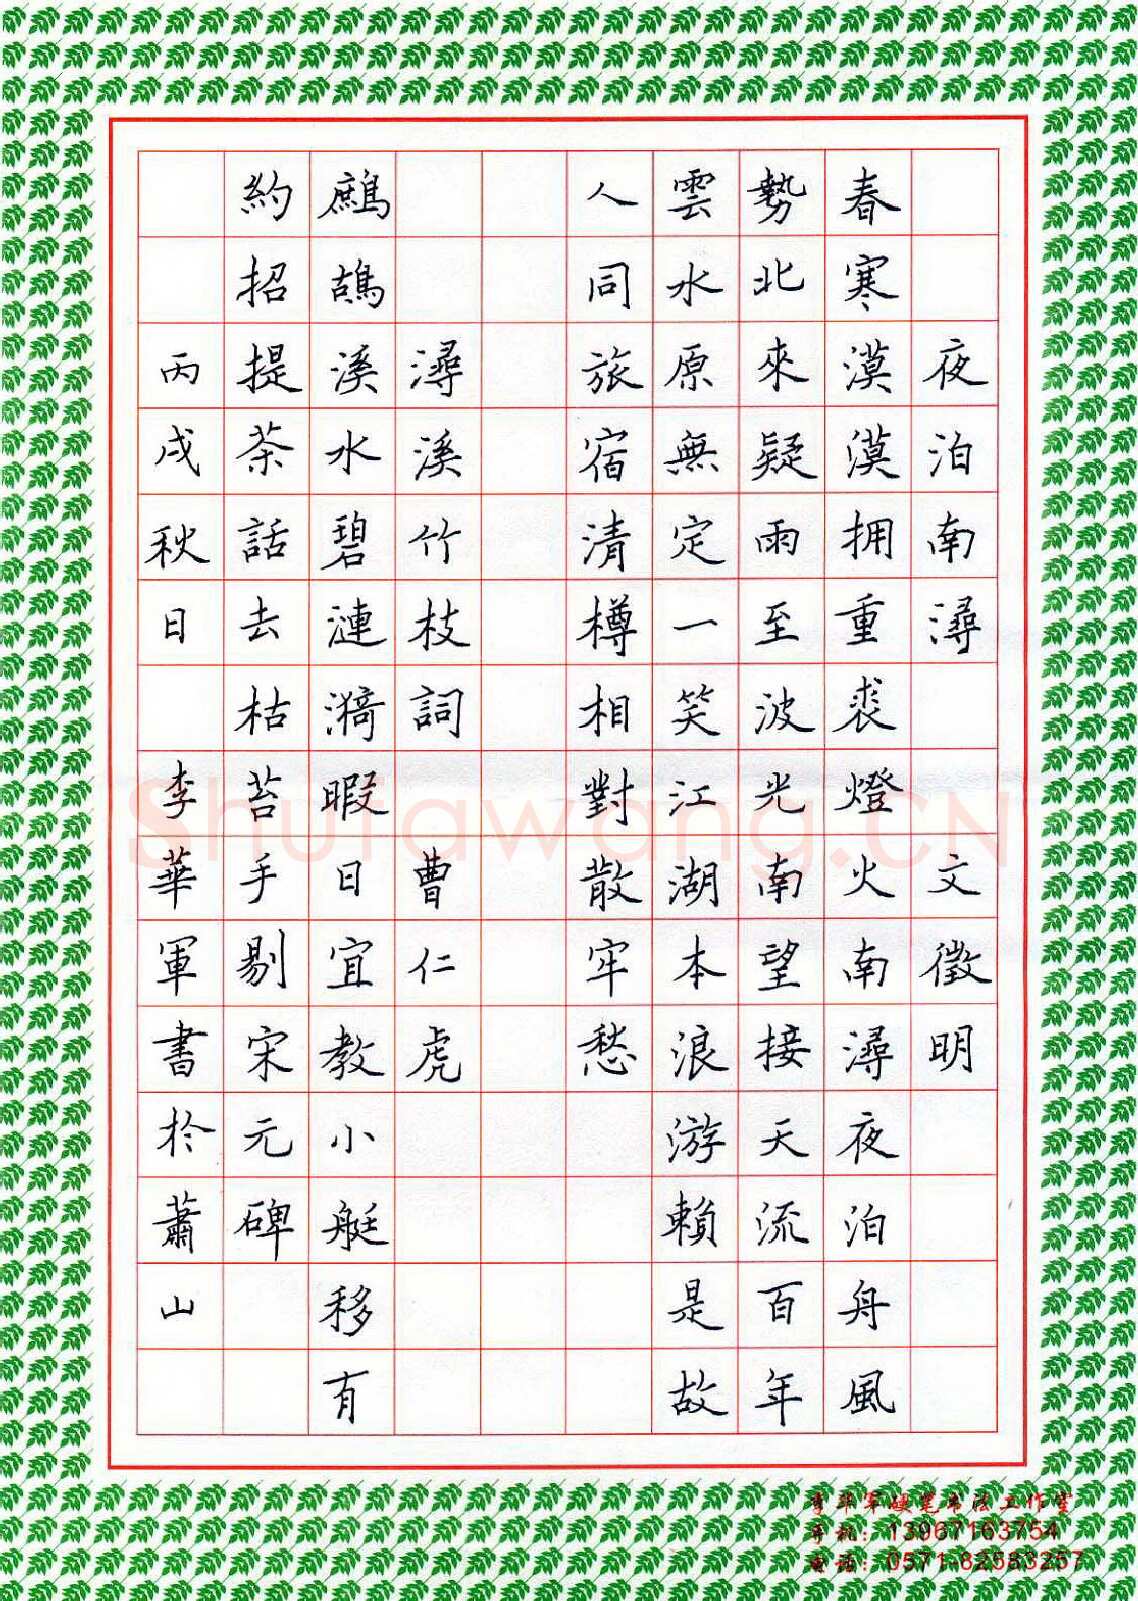 夜泊南潯 文徵明
春寒漠漠拥重裘燈火南潯夜泊舟風
勢北來疑雨至波光南望接天流百年
雲水原無定一笑江湖本浪游賴是故
人同旅宿清樽相對散牢愁
潯溪竹枝詞 曹仁虎
鷓鴣溪水碧漣漪暇日宜教小艇移有
約招提茶話去枯苔手剔宋元碑
丙戌秋日 李華軍書於蕭山
Shufawang.CN
李华军硬笔书法工作室
手机：13967163754
电话：0571-82583257